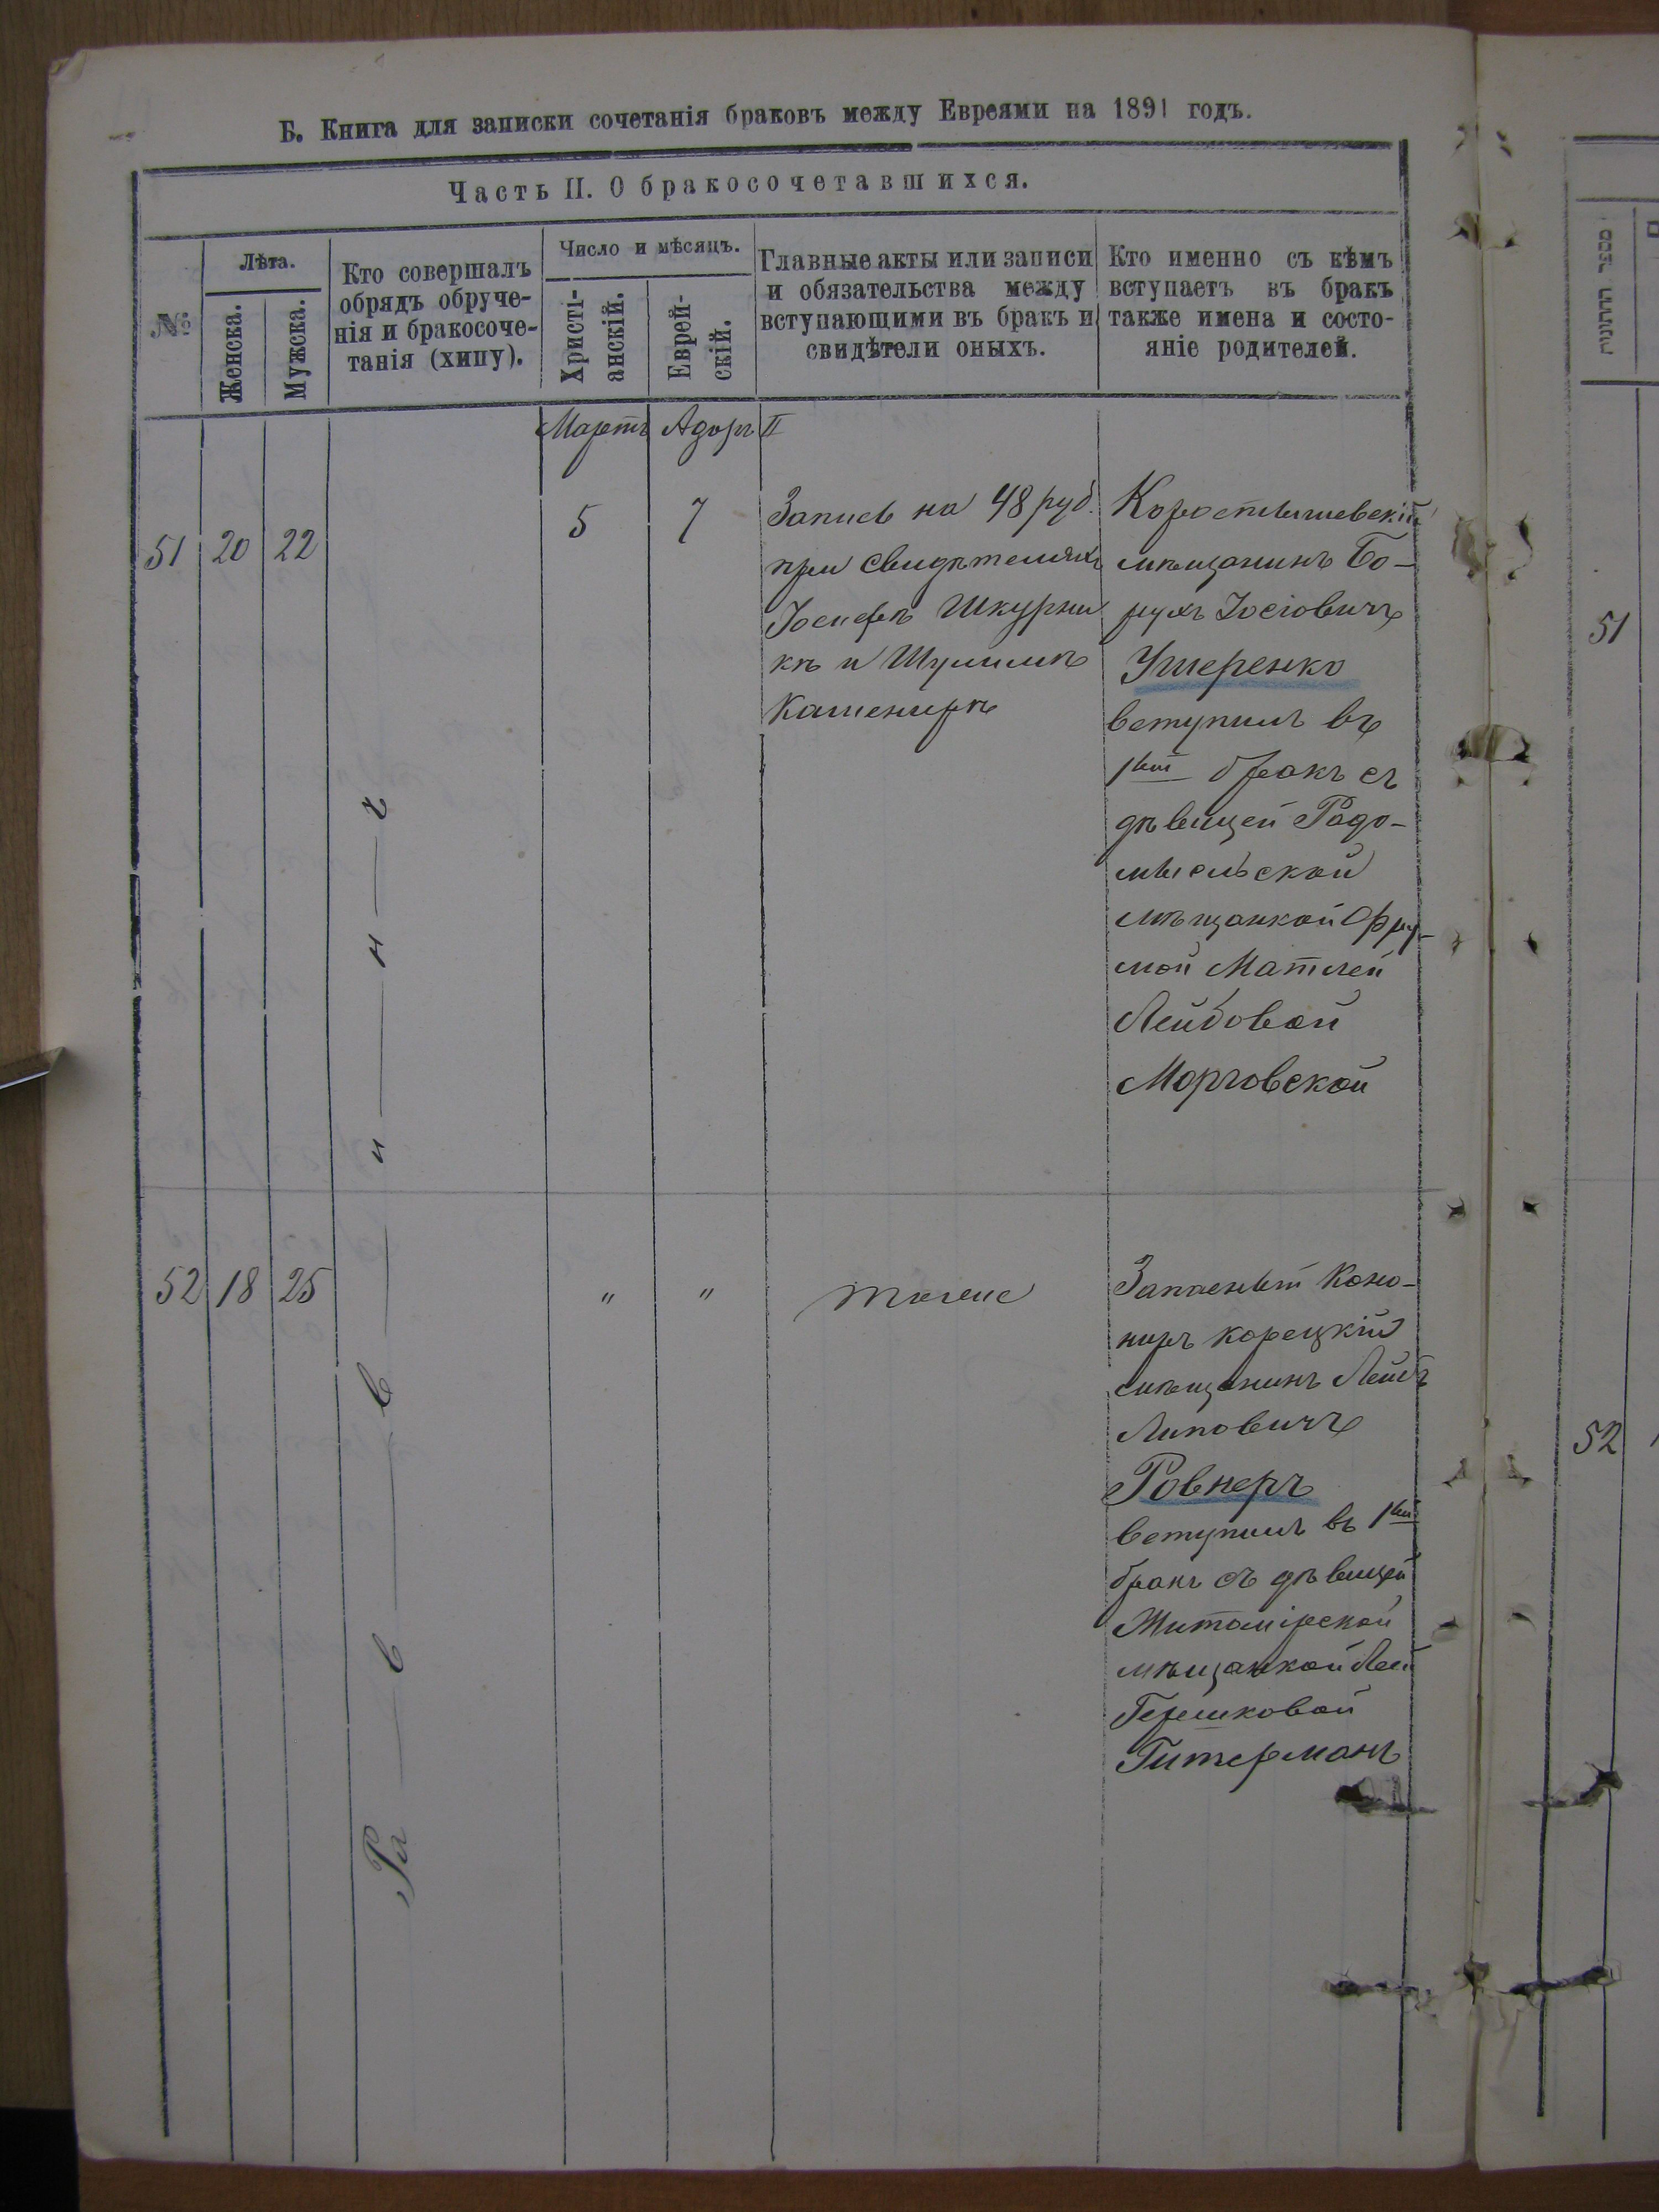 Б. Книга для записки сочетанія браковъ между Евреями на 1891 годъ.
Часть II. О бракосочетавшихся.
№
Лѣта.
Женска.
Мужска.
Кто совершалъ
обрядъ обруче-
нія и бракосоче-
танія (хипу).
Число и мѣсяцъ.
Христі-
анскій.
Еврей-
скій.
Главные акты или записи
и обязательства между
вступающими въ бракъ и
свидѣтели оныхъ.
Кто именно съ кѣмъ
вступаетъ въ бракъ
также имена и состо-
яніе родителей.
Мартъ Адоръ II
51 20 22
5 7
Запись на 48 руб.
при свидѣтеляхъ
Іосифѣ Шкурни
кѣ и Шулимѣ
Кашенирѣ
Коростышевскій
мѣщанинъ Бо-
рухъ Іосіовичъ
Ушеренко
вступилъ въ
1вый бракъ съ
дѣвицей Радо-
мысльской
мѣщанкой Фру-
мой Матлей
Лейбовой
Морговской
Раввинъ
52 18 25
" "
тоже
Запасный Коно-
ниръ корецкій
мѣщанинъ Лейбъ
Липовичъ
Ровнеръ
вступилъ въ 1вый
бракъ съ дѣвицей
Житомірской
мѣщанкой Леей
Гершковой
Гитерманъ
מספר החתונות
51
52